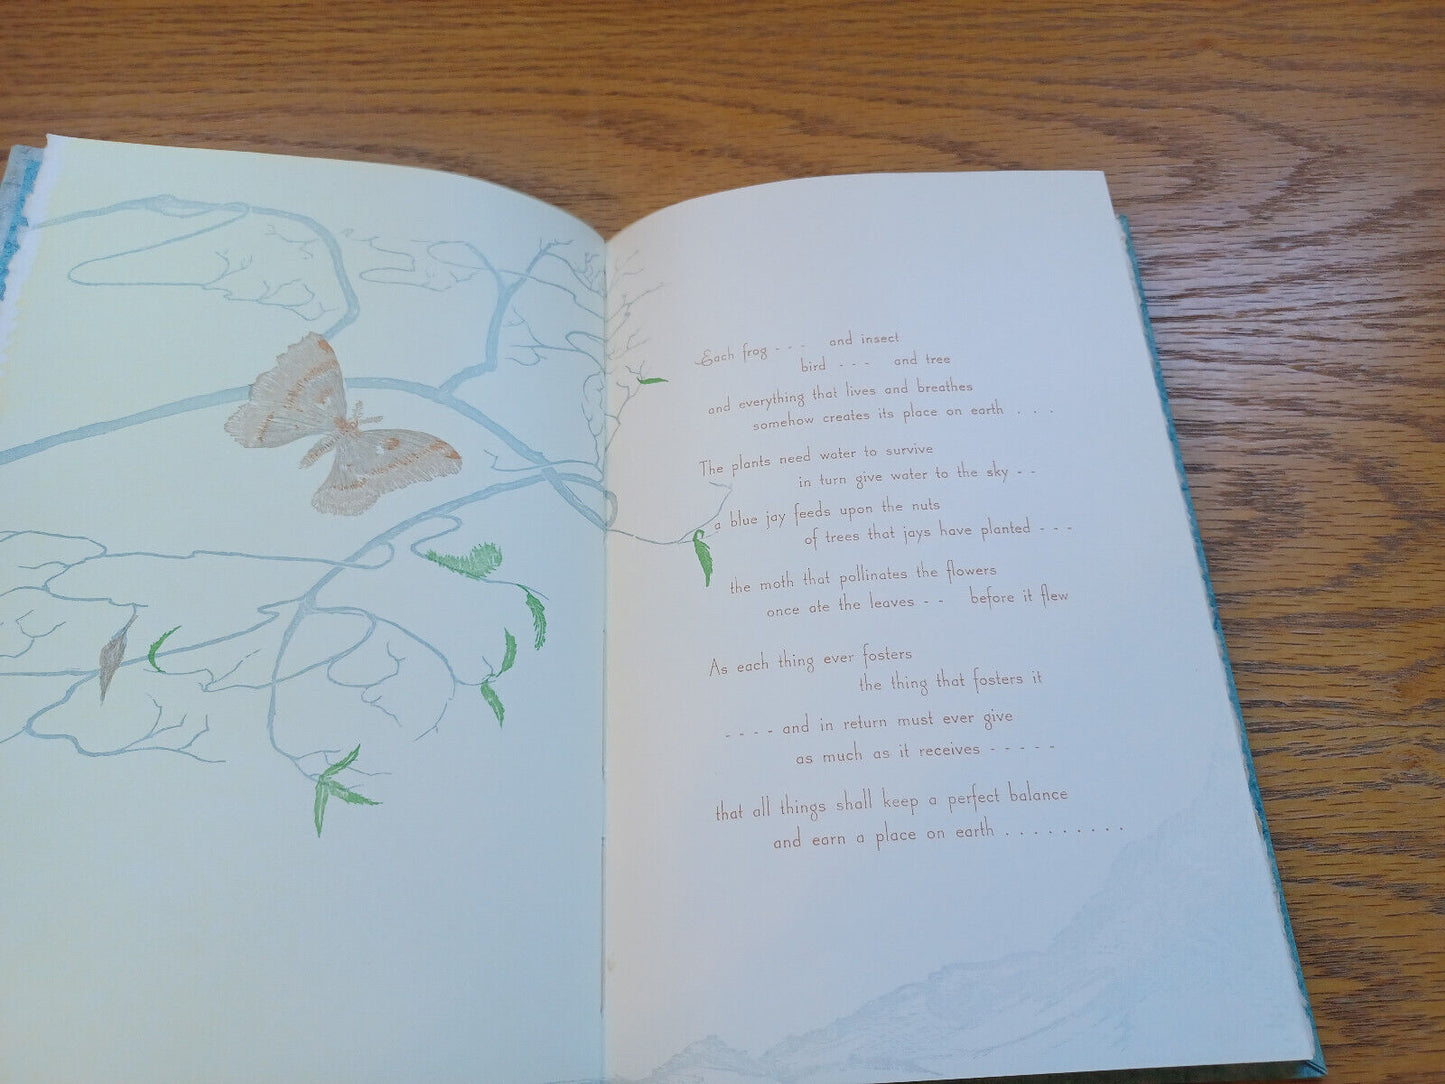 Each frog - - - and insect
bird - - - and tree
and everything that lives and breathes
somehow creates its place on earth . . .
The plants need water to survive
in turn give water to the sky - -
a blue jay feeds upon the nuts
of trees that jays have planted - - -
the moth that pollinates the flowers
once ate the leaves - - before it flew
As each thing ever fosters
the thing that fosters it
- - - - and in return must ever give
as much as it receives - - - - -
that all things shall keep a perfect balance
and earn a place on earth . . . . . . . . .